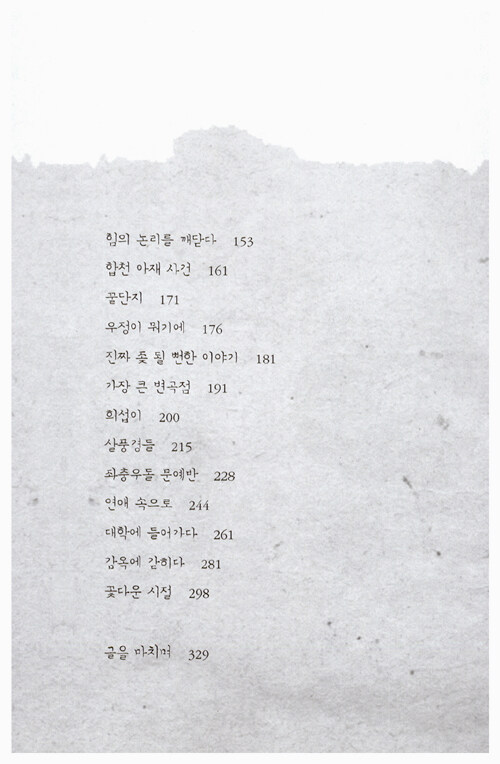 힘의 논리를 깨닫다 153
합천 아재 사건 161
꿀단지 171
우정이 뭐기에 176
진짜 좆 될 뻔한 이야기 181
가장 큰 변곡점 191
희섭이 200
살풍경들 215
좌충우돌 문예반 228
연애 속으로 244
대학에 들어가다 261
감옥에 갇히다 281
꽃다운 시절 298
글을 마치며 329